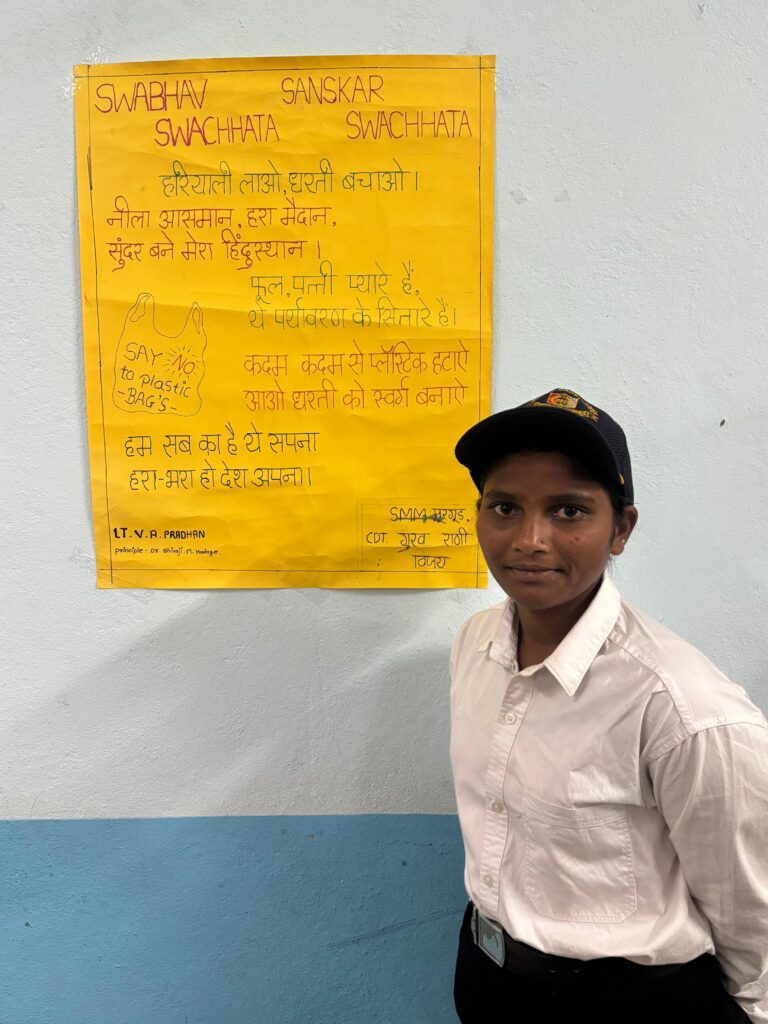 SWABHAV SANSKAR
SWACHHATA SWACHHATA
हरियाली लाओ, धरती बचाओ।
नीला आसमान, हरा मैदान,
सुंदर बने मेरा हिंदुस्थान।
फूल, पत्ती प्यारे हैं,
ये पर्यावरण के सितारे हैं।
SAY NO
to plastic
-BAG'S-
कदम कदम से प्लॅस्टिक हटाऐ
आओ धरती को स्वर्ग बनाऐ
हम सब का है ये सपना
हरा-भरा हो देश अपना।।
LT. V. A. PRADHAN
principle - DR. Shivaji. M. Hodage.
SMM मुरगूड.
CDT. गुरव राणी
विजय